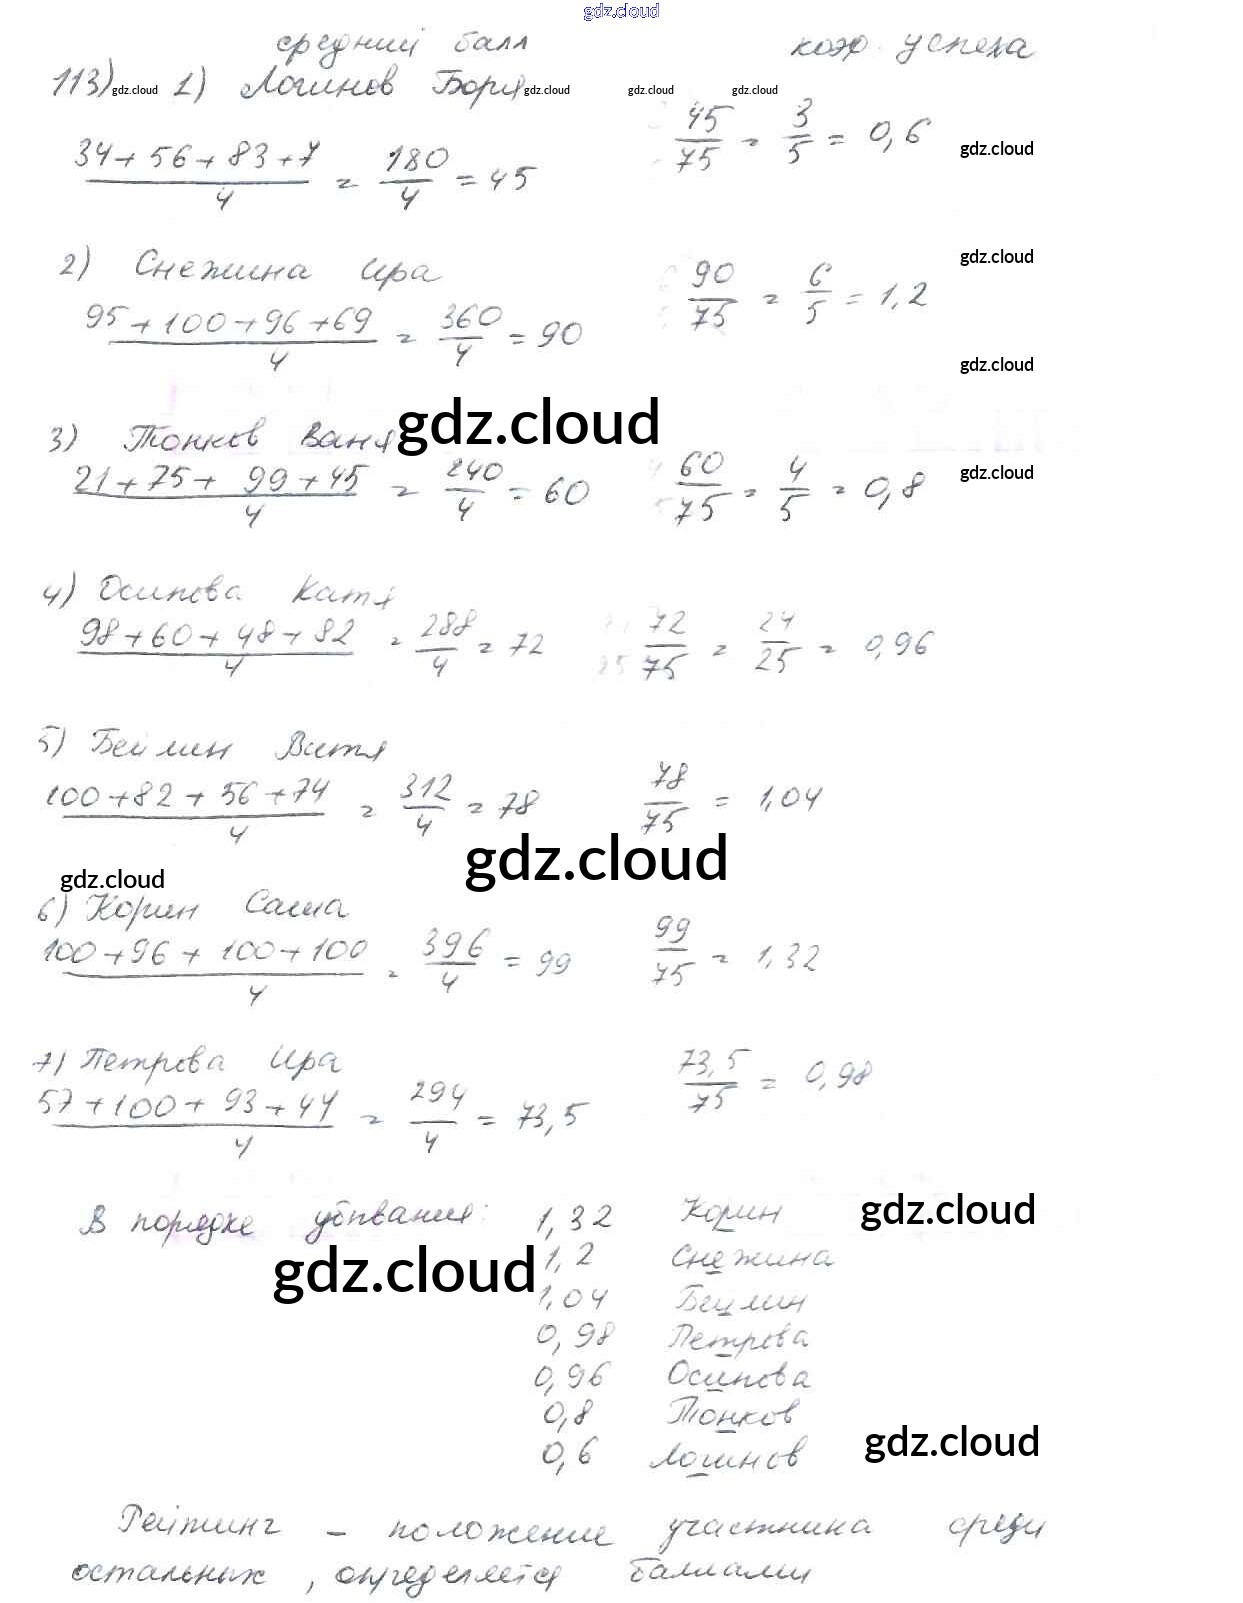 gdz.cloud
средний балл коэф. успеха
113) gdz.cloud 1) Логинов Боря gdz.cloud gdz.cloud gdz.cloud
34+56+83+7/4 = 180/4 = 45 45/75 = 3/5 = 0,6 gdz.cloud
2) Снежина Ира gdz.cloud
95+100+96+69/4 = 360/4 = 90 90/75 = 6/5 = 1,2
gdz.cloud
3) Тонков Ваня gdz.cloud
21+75+99+45/4 = 240/4 = 60 60/75 = 4/5 = 0,8 gdz.cloud
4) Осипова Катя
98+60+48+82/4 = 288/4 = 72 72/75 = 24/25 = 0,96
5) Бейлин Витя
100+82+56+74/4 = 312/4 = 78 78/75 = 1,04
gdz.cloud
gdz.cloud
6) Корин Саша
100+96+100+100/4 = 396/4 = 99 99/75 = 1,32
7) Петрова Ира
57+100+93+44/4 = 294/4 = 73,5 73,5/75 = 0,98
В порядке убывания: 1,32 Корин gdz.cloud
gdz.cloud 1,2 Снежина
1,04 Бейлин
0,98 Петрова
0,96 Осипова
0,8 Тонков
0,6 Логинов gdz.cloud
Рейтинг – положение участника среди
остальных, определяется баллами